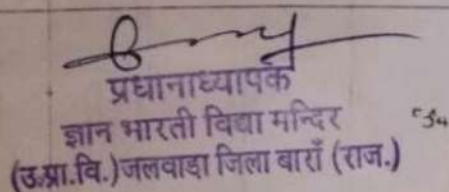 प्रधानाध्यापक
ज्ञान भारती विद्या मन्दिर
(उ.प्रा.वि.)जलवाडा जिला बाराँ (राज.)